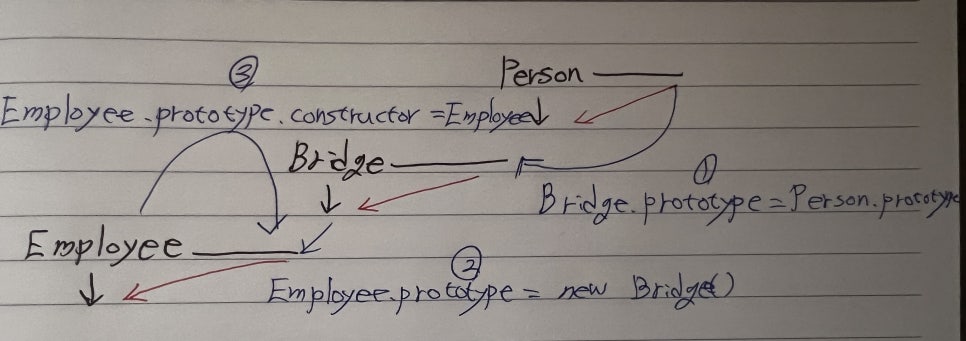 ③
Person
Employee.prototype.constructor =Employee
Bridge
①
Bridge.prototype=Person.prototype
Employee
②
Employee.prototype = new Bridge()